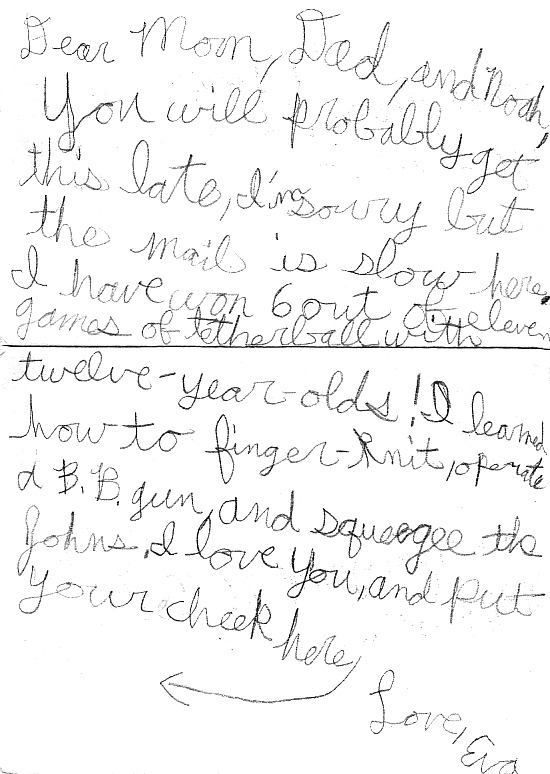 Dear Mom, Dad, and Noah,
You will probably get
this late, I'm sorry but
the mail is slow here.
I have won 6 out of eleven
games of tetherball with
twelve-year-olds! I learned
how to finger-knit, operate
a B.B. gun, and squeegee the
Johns. I love you, and put
your cheek here
Love, Eva